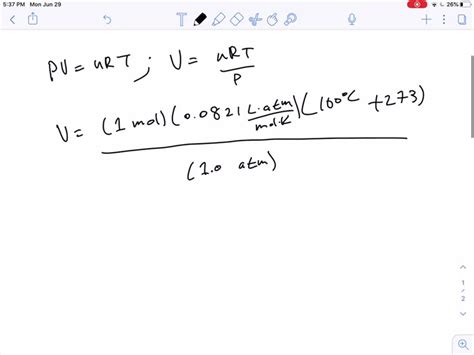 5:37 PM Mon Jun 29
26%
PV = nRT ; V = nRT / P
V = (1 mol)(0.0821 L·atm / mol·K)(100°C + 273)
(1.0 atm)
1
2